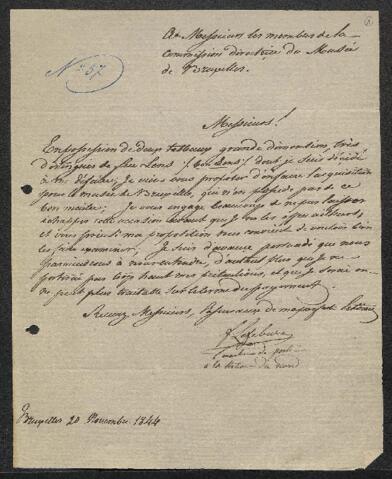 N° 57
A Messieurs les membres de la
Commission directrice du Musée
de Bruxelles.
Messieurs!
En possession de deux tableaux grande dimension, très
de feu Lens (bon Lens) dont je suis décidé
à me défaire; je viens vous proposer d'en faire l'acquisition
pour le musée de Bruxelles, qui n'en possède pas de ce
bon maître; je vous engage beaucoup à ne pas laisser
échapper cette occasion autant que je
et vous prie si ma proposition vous convient de vouloir bien
les faire examiner. Je suis d'avance persuadé que nous
parviendrons à nous entendre, d'autant plus que je ne
porterai pas bien haut mes prétentions, et que je serai on
ne peut plus traitable sur le terme du payement.
Recevez Messieurs, l'assurance de ma parfaite
Lefebure
à la du nord
Bruxelles 20 Novembre 1844